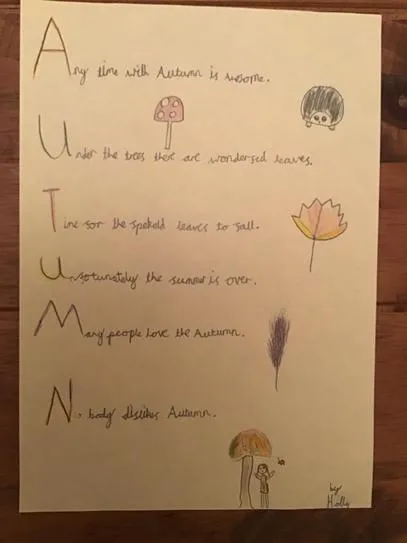 Any time with Autumn is awsome.
Under the trees there are wonderfed leaves.
Time for the spekeld leaves to fall.
Unfotunately the summer is over.
Many people love the Autumn.
No body dislikes Autumn.
by
Holly